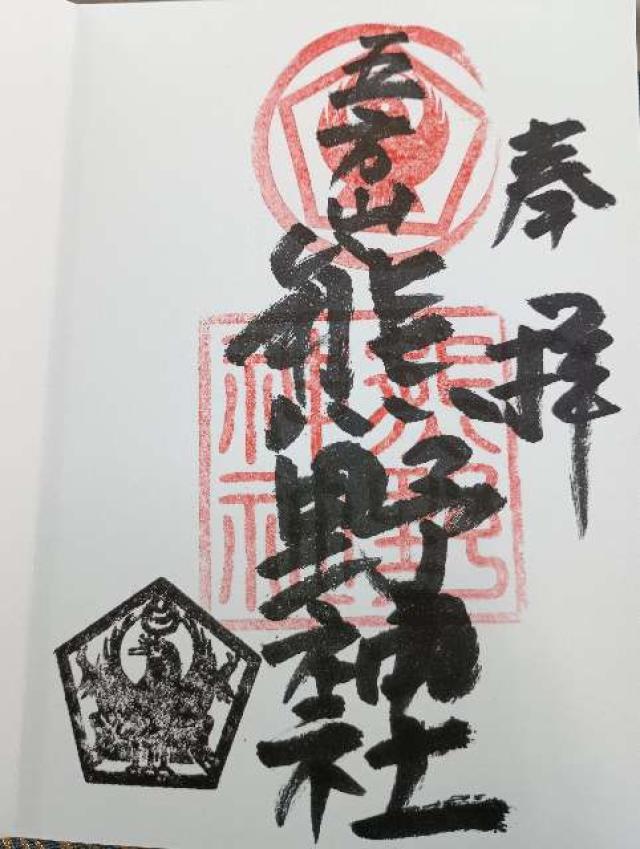 奉拝
五方山
熊野神社
熊野
神社